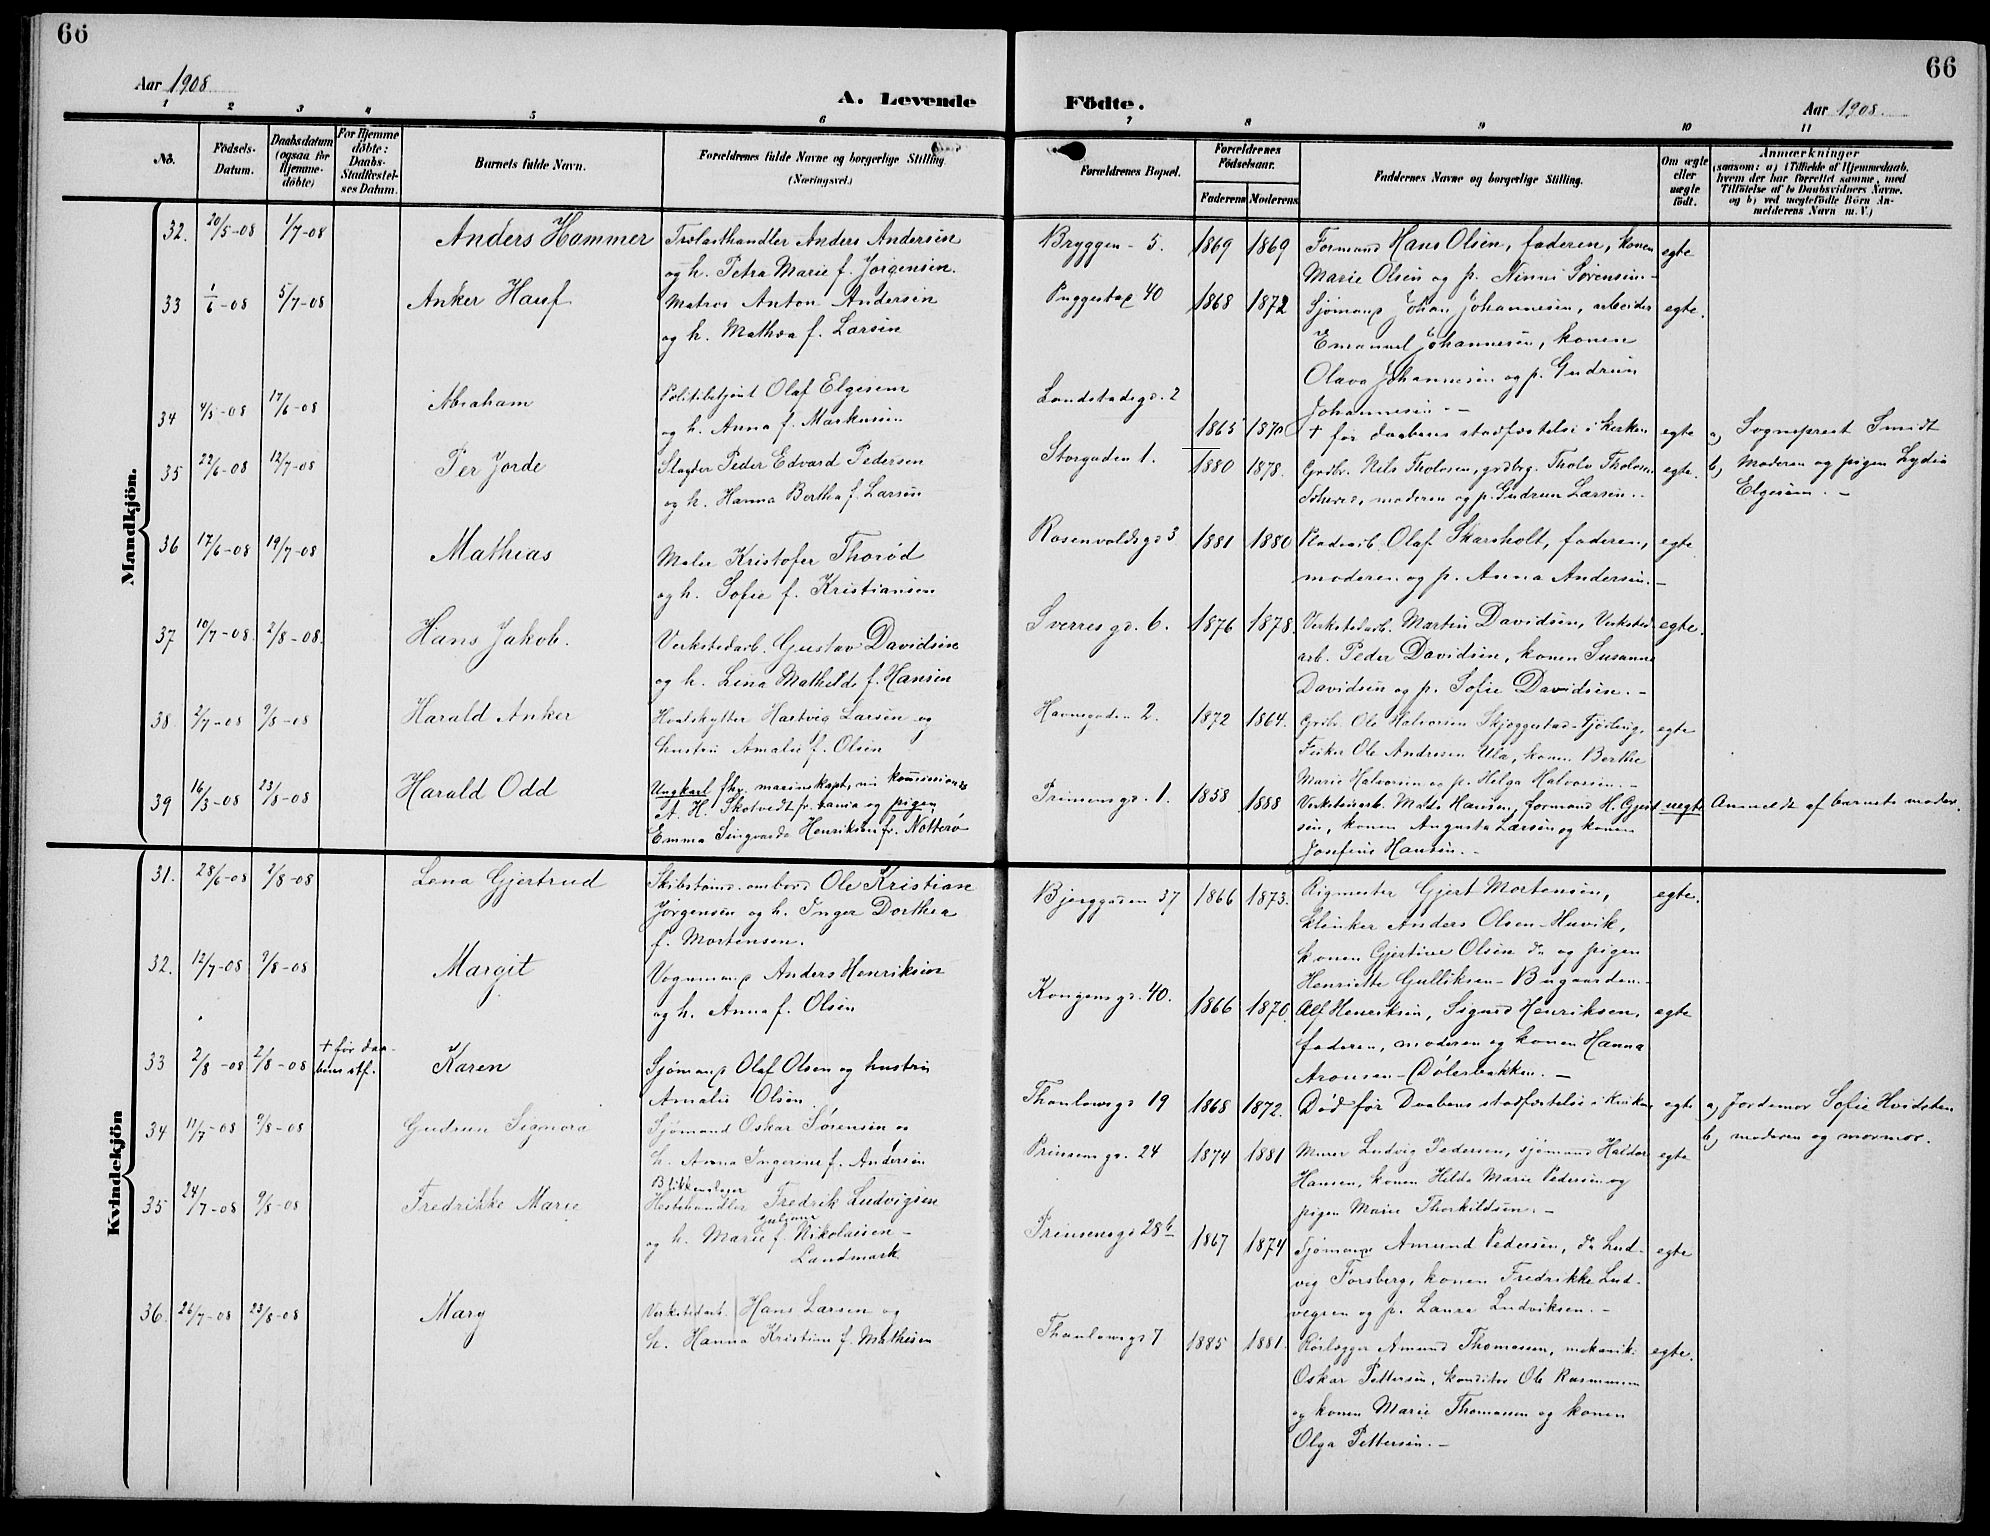 66
66
Aar 1908
A. Levende Födte.
Aar 1908
1 2 3 4 5 6 7 8 9 10 11
No.
Födsels-Datum.
Daabsdatum (ogsaa för Hjemme-döbte)
For Hjemme döbte: Daabs-Stadfæstel-ses Datum.
Barnets fulde Navn.
Forældrenes fulde Navne og borgerlige Stilling (Næringsvei.)
Forældrenes Bopæl.
Forældrenes Födselsaar.
Faderens Moderens
Faddernes Navne og borgerlige Stilling.
Om ægte eller uægte födt.
Anmærkninger
(saasom: a) i Tilfælde af Hjemmedaab,
hvem der har forrettet samme, med
Tilföielse af to Daabsvidners Navne,
og b) ved uægtefödte Börn An-
melderens Navn m. V.)
Mandkjön.
32. 20/5-08 1/7-08 Anders Hammer
Trælasthandler Anders Andersen
og h. Petra Marie f. Jørgensen.
Bryggen - 5. 1869 1869
Formand Hans Olsen, faderen, konen
Marie Olsen og p. Ninni Sørensen.-
egte
33 1/6-08 5/7-08 Anker Hauf
Matros Anton Andersen
og h. Mathea f. Larsen
40 1868 1872
Sjømand Johan Johannesen, arbeider
Emanuel Johannesen, konen
Olava Johannesen og p. Gudrun
Johannesen. -
egte.
34 4/5-08 17/6-08 Abraham
Politibetjent Olaf Elgesem
og h. Anna f. Markussen
Landstadsgd. 2 1865 1870
+ før daabens stadfæstelse i kirken
egte
a) Sogneprest Smidt
b) moderen og pigen Lydia
Elgesem. -
35 22/6-08 12/7-08 Per Jorde
Slagter Peder Edvard Pedersen
og h. Hanna Berthea f. Larsen
Storgaden 1. 1880 1878.
Grdbr. Nils Tholvsen, grdbrg. Tholv Tholvsen
moderen og p. Gudrun Larsen..
egte.
36 17/6-08 19/7-08 Mathias
Maler Kristofer Thorød
og h. Sofie f. Kristiansen
Rosenvoldsgd 3 1881 1880
Pladearb. Olaf Skarsholt, faderen,
moderen og p. Anna Andersen.-
egte
37 10/7-08. 2/8-08. Hans Jakob.
Verkstedarb. Gustav Davidsen
og h. Lina Mathilde f. Hansen
Sverresgd. 6. 1876 1878.
Verkstedarb. Martin Davidsen, Verksted-
arb. Peder Davidsen, konen Susanne
Davidsen og p. Sofie Davidsen. -
egte.
38 2/7-08 9/8-08 Harald Anker
Hvalskytter Hartvig Larsen og
hustru Amalie f. Olsen
Havnegaden 2. 1872 1864.
Grdbr. Ole Halvorsen Skjeggestad-Fjærling,
Fisker Ole Andresen Ula, konen Berthe
Marie Halvorsen og p. Helga Halvorsen.-
egte
39 16/3-08 23/8-08 Harald Odd
Ungkarl fhv. marinekapt, nu kommissionær
A. H. Skotvedt fr. bania og pigen
Emma Singvarda Henriksen fr. Nötterö
Prinsensgd. 1. 1858 1888
Verkstedsarb. Mads Hansen, formand H. Gjert-
sen, konen Augusta Larsen og konen
Josefine Hansen. -
uegte
Anmeldt af barnets moder.
Kvindekjön
31. 28/6-08 2/8-08 Lena Gjertrud
Skibstømmermand Ole Kristian
Jørgensen og h. Inger Dorthea
f. Mortensen.
Bjerggaden 37 1866 1873.
Rigmester Gjert Mortensen,
klinker Anders Olsen-Huvik,
konen Gjertine Olsen do og pigen
Henriette Gulliksen-Bugaarden.-
egte.
32. 12/7-08 9/8-08 Margit
Vognmand Anders Henriksen
og h. Anna f. Olsen
Kongensgd. 40. 1866 1870.
Alf Henriksen, Sigurd Henriksen,
faderen, moderen og konen Hanna
Aronsen-Dölebakken. -
egte
33 2/8-08 2/8-08 + før daa-
bens stf. Karen
Sjømand Olaf Olsen og hustru
Amalie Olsen
Thaulowsgd 19 1868 1872.
Død før Daabens stadfæstelse i Kirken
egte
a) Jordemor Sofie Hvidsten
b) moderen og mormor.
34 11/7-08 9/8-08 Gudrun Signora
Sjømand Oskar Sörensen og
h. Anna Ingerine f. Andersen
Prinsensgd. 24 1874 1881
Murer Ludvig Pedersen, sjømand Haldor
Hansen, konen Hilda Marie Pedersen og
pigen Marie Thorkildsen. -
egte
35 24/7-08 9/8-08 Fredrikke Marie
Blikkenslager
Hestehandler Fredrik Ludvigsen
og h. Marie f. Nikolaisen -
Landmark
Prinsensgd 28b 1867 1874
Sjømand Amund Pedersen, do Lud-
vig Forsberg, konen Fredrikke Lud-
vigsen og p. Laura Ludviksen. -
egte
36. 26/7-08 23/8-08 Mary
Verkstedarb. Hans Larsen og
h. Hanna Kristine f. Mathisen
Thaulowsgd 7 1885 1881.
Rørlægger Amund Thomassen, mekanik.
Oskar Pettersen, konditor Ole Rasmussen
og konen Marie Thomassen og konen
Olga Pettersen. -
egte.